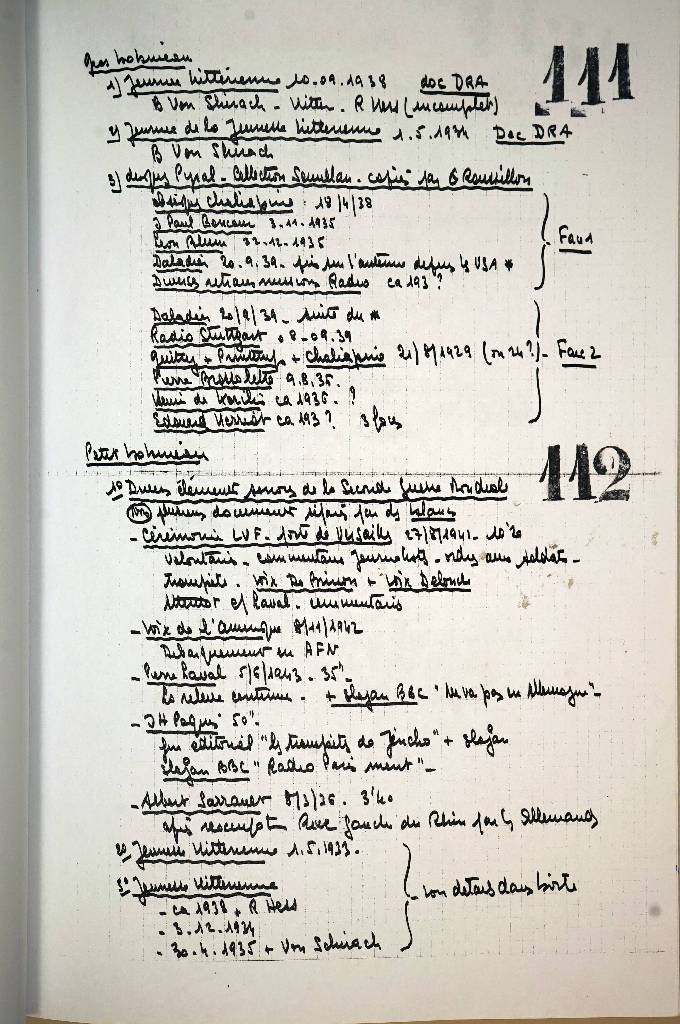 111
1) Jeunesse hitlerienne 10.09.1938 doc DRA
B Von Shirach - Hitler - R Hess (incomplet)
2) Jeunesse de la Jeunesse hitlerienne 1.5.1934 Doc DRA
B Von Shirach
3) disques Pyral - Collection - copies par G Roussillon
obsèques Chaliapine : 18/4/38
J Paul Boncour 3.11.1935
Leon Blum 22.12.1935
Daladier 20.9.39 - pris sur l'antenne depuis les USA *
Diverses retransmissions Radio ca 193?
Face 1
Daladier 20/9/39 - suite du *
Radio Stuttgart 8-09.39
Guitry + Printemps + Chaliapine 21/8/1929 (ou 24?) - Face 2
Pierre Brossolette 9.8.36.
Henri de Kerillis ca 1936. ?
Edouard Herriot ca 193? 3 faces
112
1º Divers élément sonores de la Seconde Guerre Mondiale
plusieurs document séparés par des blancs
- Cérémonie LVF - porte de Versailles 27/8/1941 - 10'20
Volontaires - commentaires journalistes - ordres aux soldats -
trompette - Voix De Brinon + Voix Deloncle
Attentat c/ Laval - commentaires
- Voix de l'Amérique 8/11/1942
Debarquement en AFN
- Pierre Laval 5/6/1943 - 35"
la releve continue - + slogan BBC "Ne va pas en Allemagne" -
- JH Paquis 50" -
fin éditorial "les trompettes de Jéricho" + slogan
slogan BBC "Radio Paris ment" -
- Albert Sarraut 8/3/36 . 3'40
après reoccupation Rive Gauche du Rhin par les Allemands
2º Jeunesse Hitlerienne 1.5.1933.
3º Jeunesse Hitlerienne
- ca 1938 + R Hess
- 3.12.1934
- 30.4.1935 + Von Schirach
voir details dans boite